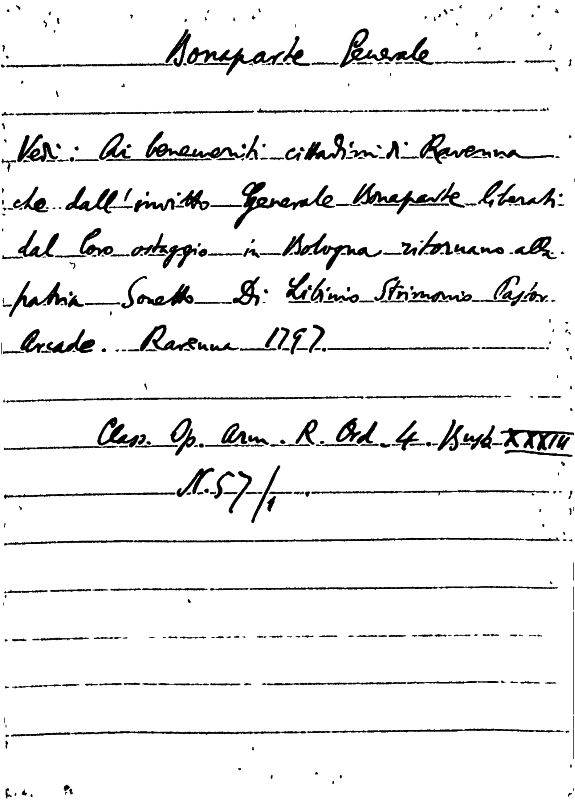 Bonaparte Generale
Vedi: Ai benemeriti cittadini di Ravenna
che dall'invitto Generale Bonaparte liberati
dal loro ostaggio in Bologna ritornano alla
patria Sonetto Di Libinio Strimonio Pastor
Arcade. Ravenna 1797.
Class. Op. Arm. R. Ord. 4. Busta XXXIII
N. 57/1.